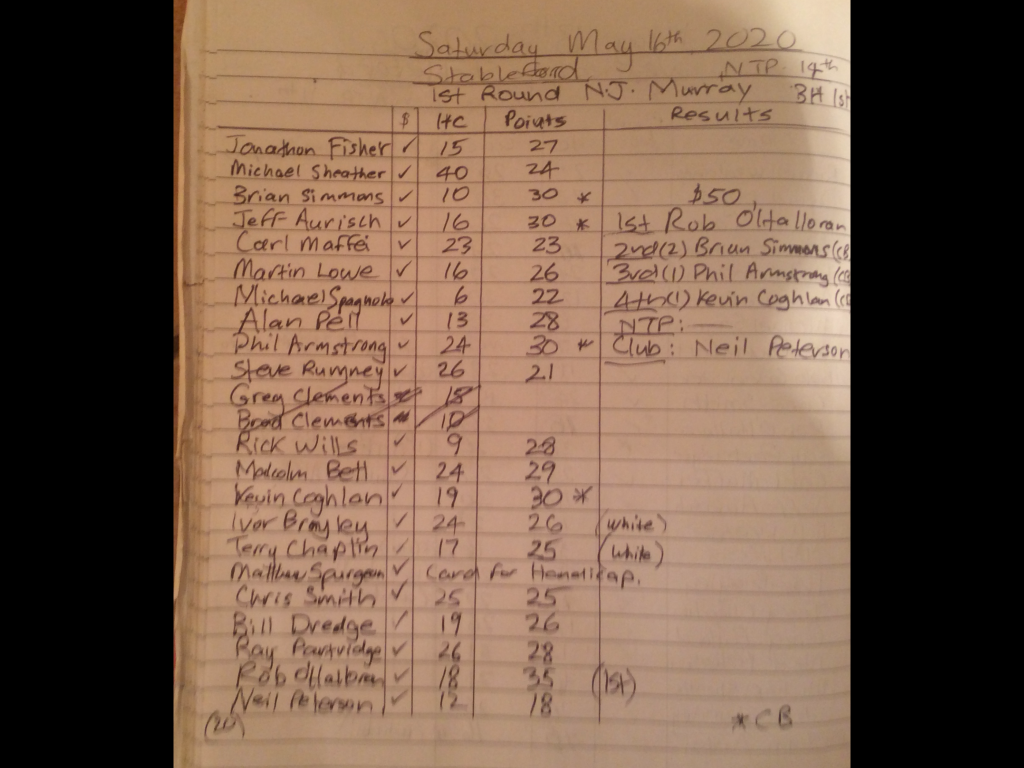 Saturday May 16th 2020
Stableford NTP. 14th
1st Round N.J. Murray BH 1st
$ HC Points Results
Jonathon Fisher ✓ 15 27
Michael Sheather ✓ 40 24
Brian Simmons ✓ 10 30 * $50,
Jeff Aurisch ✓ 16 30 * 1st Rob O'Halloran
Carl Maffei ✓ 23 23 2nd (2) Brian Simmons (CB
Martin Lowe ✓ 16 26 3rd (1) Phil Armstrong (CB
Michael Spagnolo ✓ 6 22 4th (1) Kevin Coghlan (C
Alan Pell ✓ 13 28 NTP: —
Phil Armstrong ✓ 24 30 * Club: Neil Peterson
Steve Rumney ✓ 26 21
Greg Clements 18
Brad Clements 10
Rick Wills ✓ 9 28
Malcolm Bell ✓ 24 29
Kevin Coghlan ✓ 19 30 *
Ivor Brayley ✓ 24 26 (white)
Terry Chaplin ✓ 17 25 (white)
Matthew Spurgeon ✓ Card for Handicap.
Chris Smith ✓ 25 25
Bill Dredge ✓ 19 26
Ray Partridge ✓ 26 28
Rob O'Halloran ✓ 18 35 (1st)
Neil Peterson ✓ 12 18
* CB